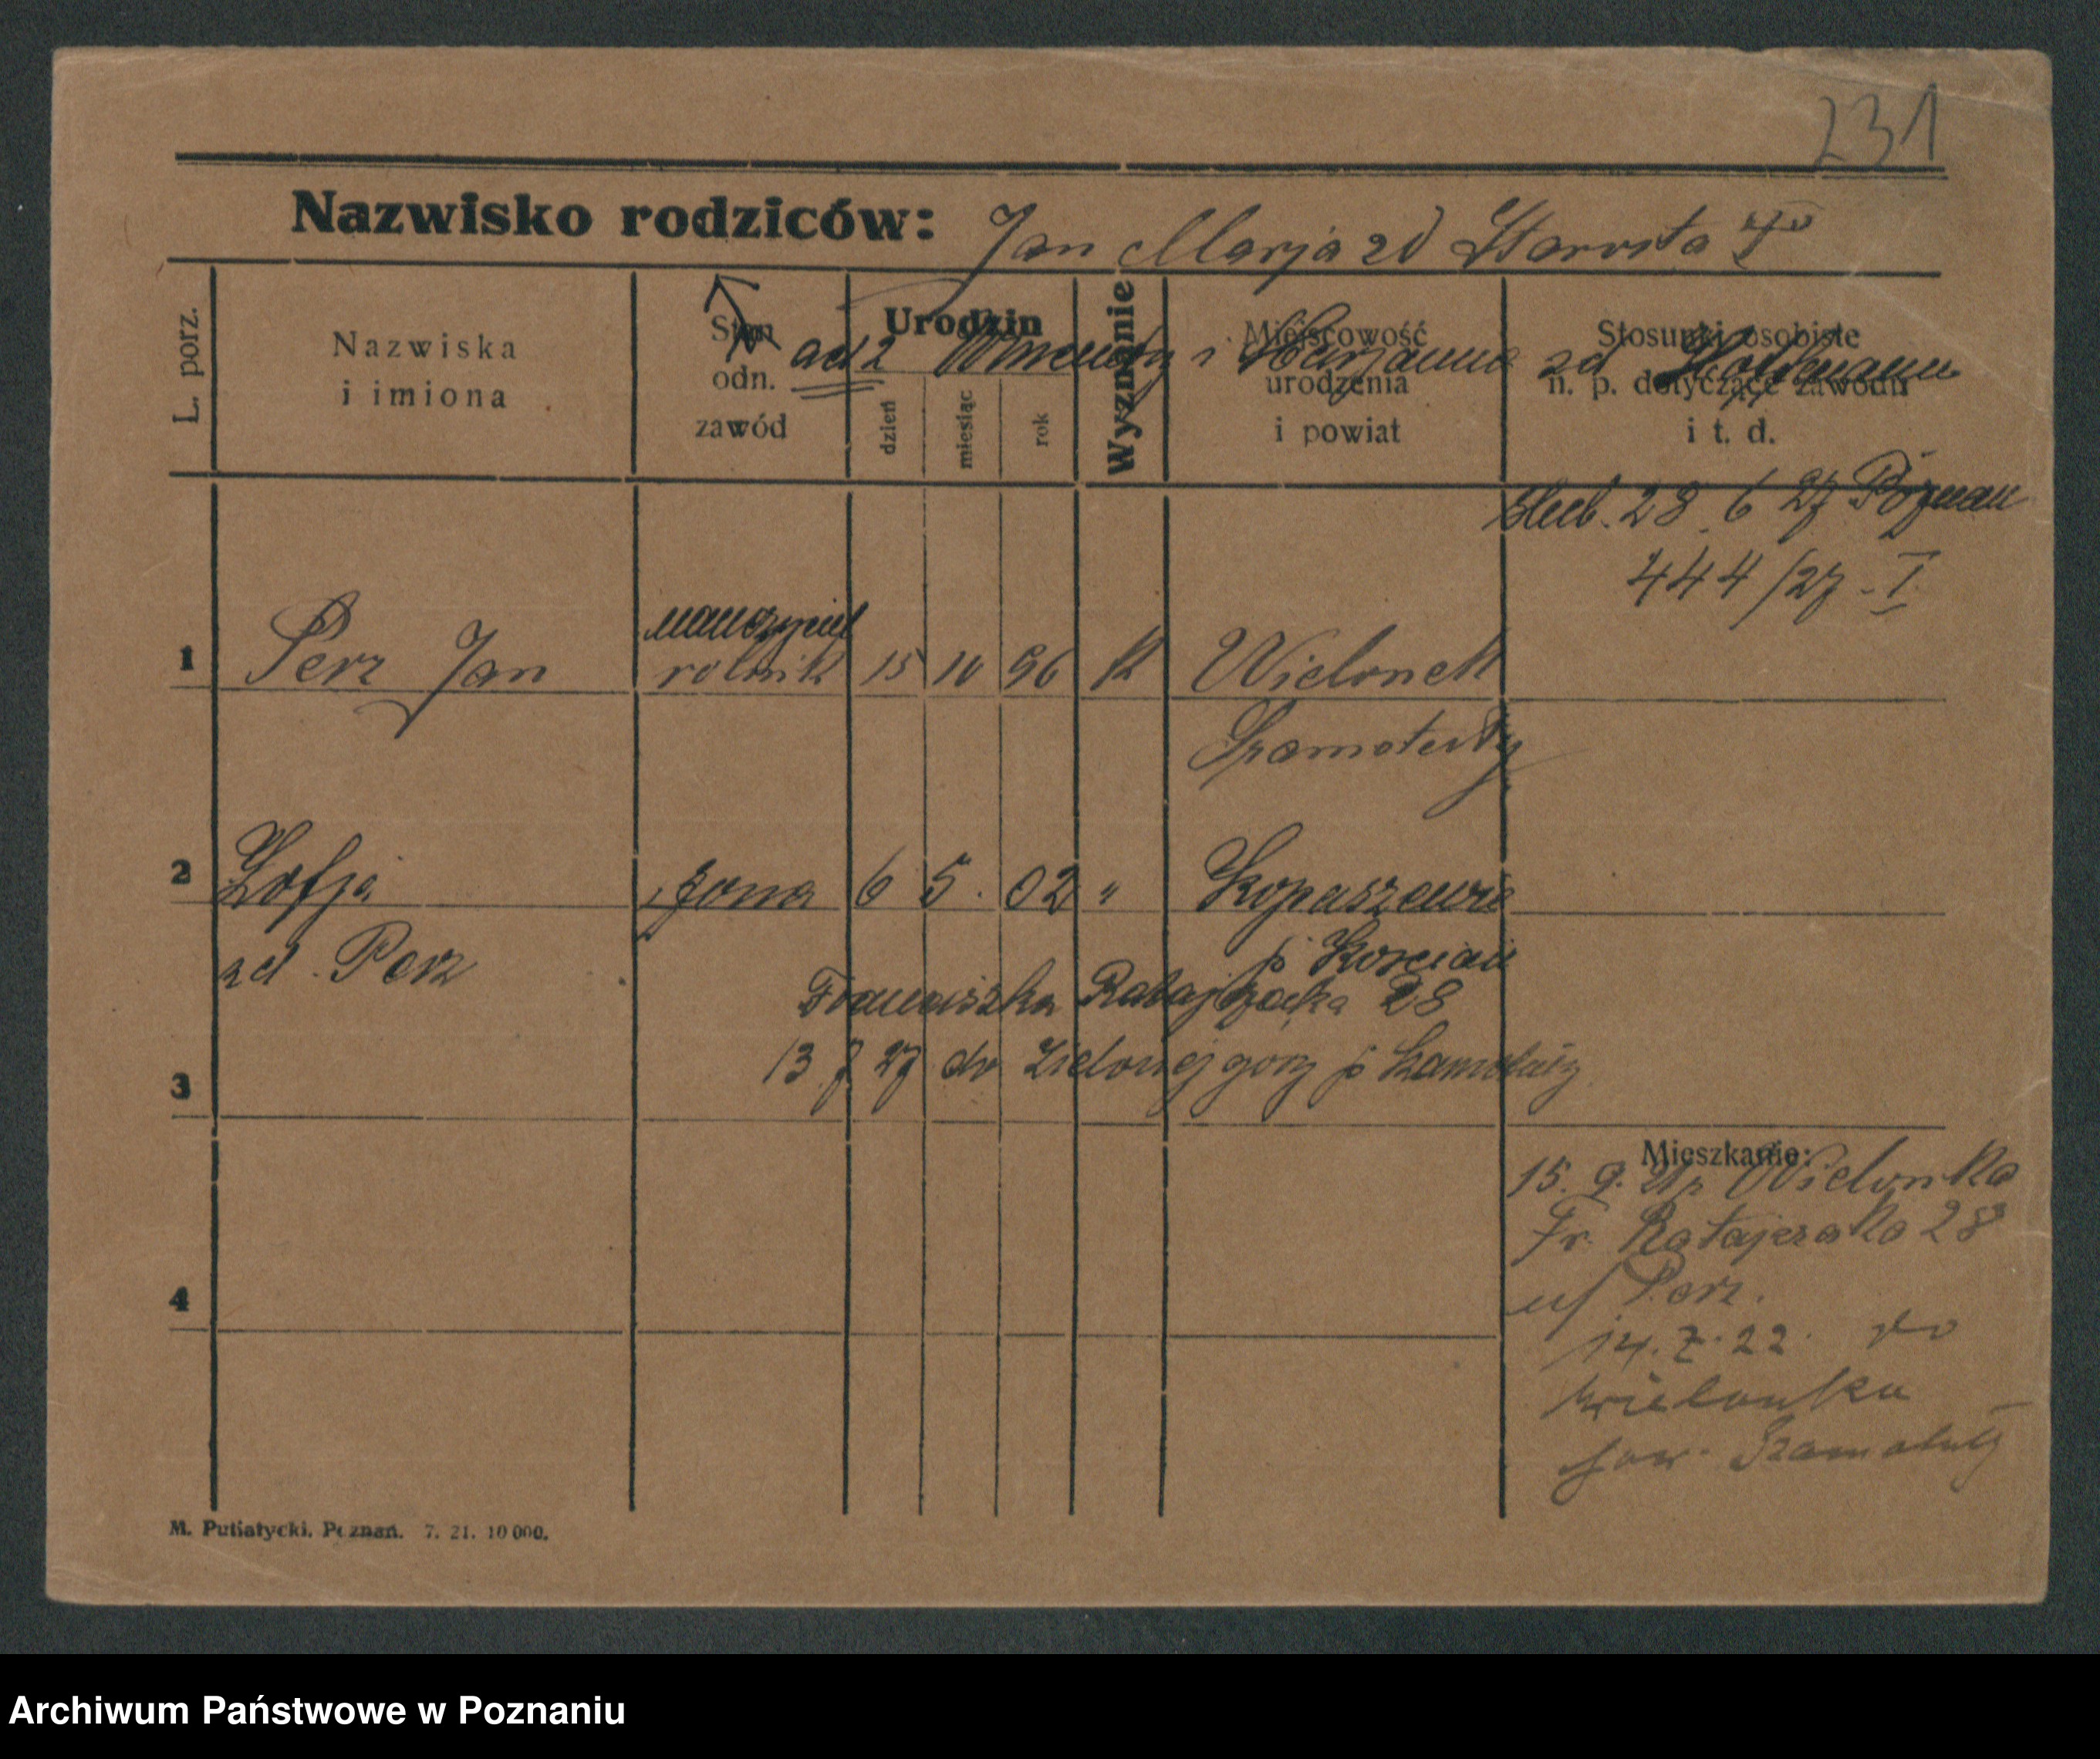 231
Nazwisko rodziców: Jan Marja zd Starosta
ad 2 Wincenty i Marjanna zd Hoffmann
L. porz.
Nazwiska
i imiona
Stan
odn.
zawód
Urodzin
dzień
miesiąc
rok
Wyznanie
Miejscowość
urodzenia
i powiat
Stosunki osobiste
n. p. dotyczące zawodu
i t. d.
Ślub. 28 6 27 Poznań
444/27 - I
nauczyciel
1 Perz Jan rolnik 15 10 96 k Wielonek
Szamotuły
2 Zofja żona 6 5. 02 " Kopaszewie
zd. Perz p. Kościan
Franciszka Ratajczaka 28
3 13. 7 27 do Zielonejgóry p. Szamotuły
Mieszkanie:
15. 9. 21 z Wielonka
Fr. Ratajczaka 28
u/ Perz.
14. 7. 22. do
Wielonka
pow. Szamotuły
4
M. Putiatycki. Poznań. 7. 21. 10 000.
Archiwum Państwowe w Poznaniu